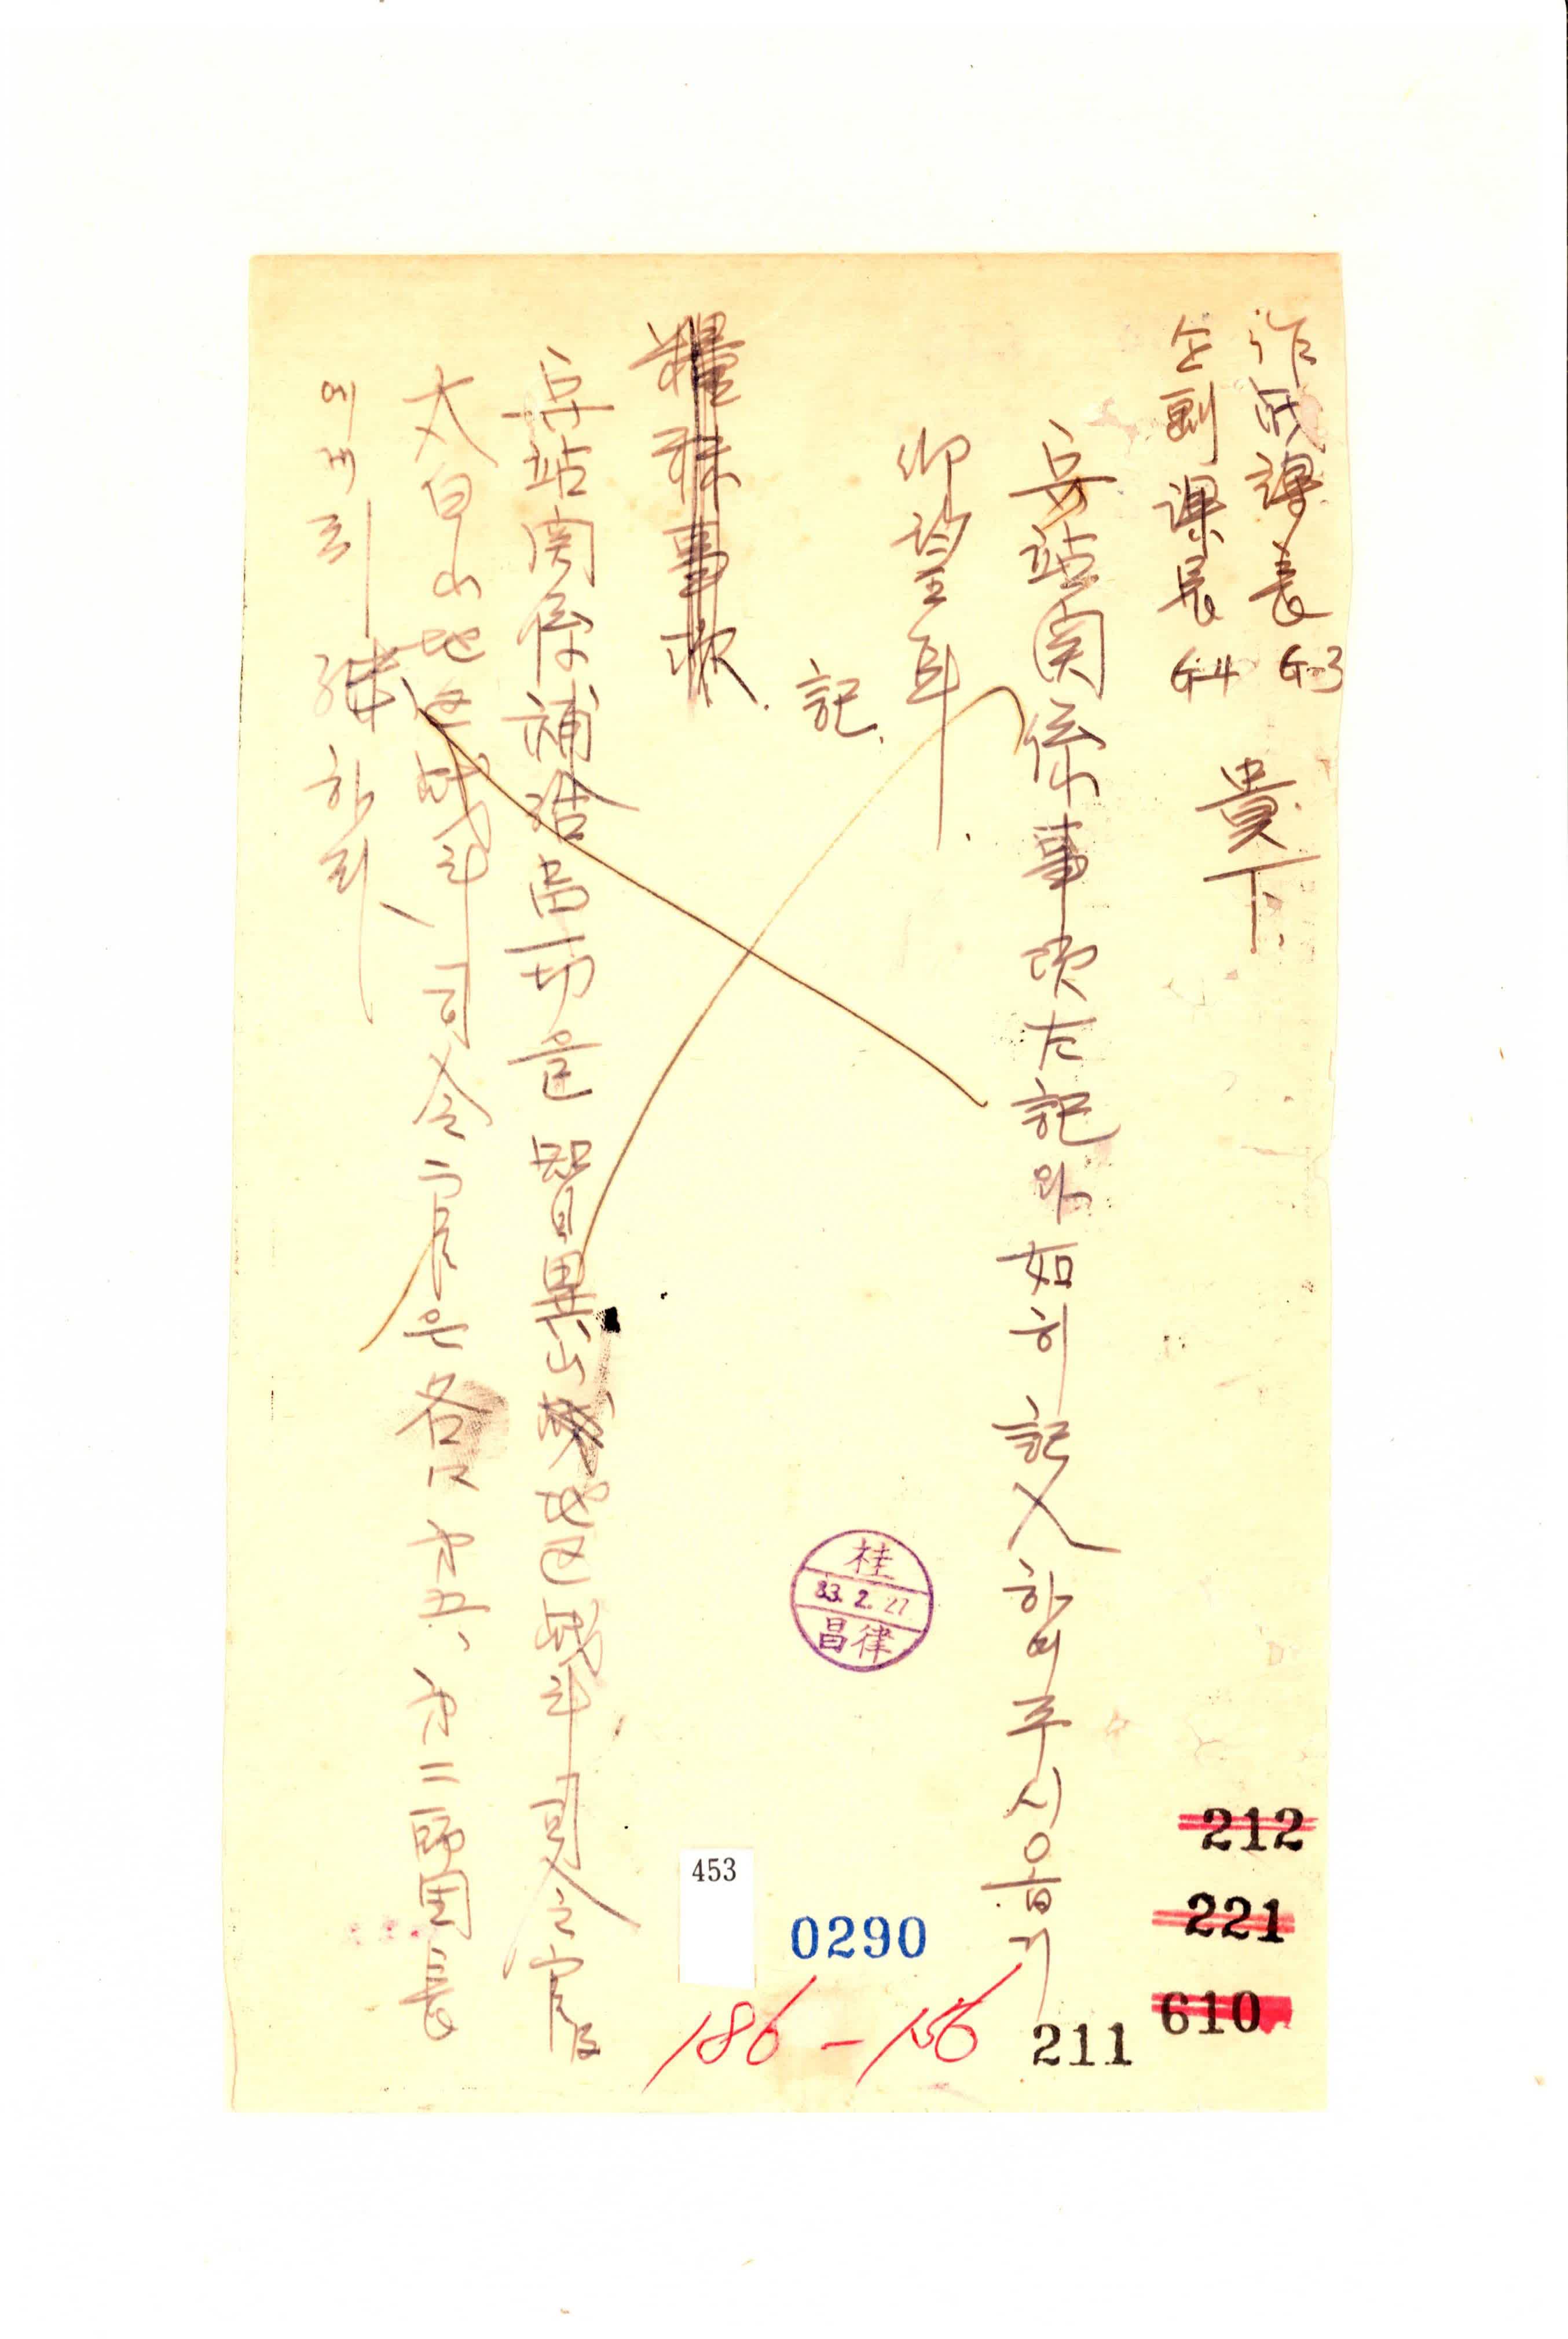 作战課長 G-3
企劃課長 G-4
貴下.
兵站関係事項左記와 如히 記入하여 주시옵기
仰望耳.
記.
糧秣事項.
兵站関係補給品一切은 智異山地区战斗司令官及
太白山地区战斗司令官은 各々 才五、才二師団長
에게리 하리
桂
83.2.27
昌律
212
221
610
453
0290
186-156
211